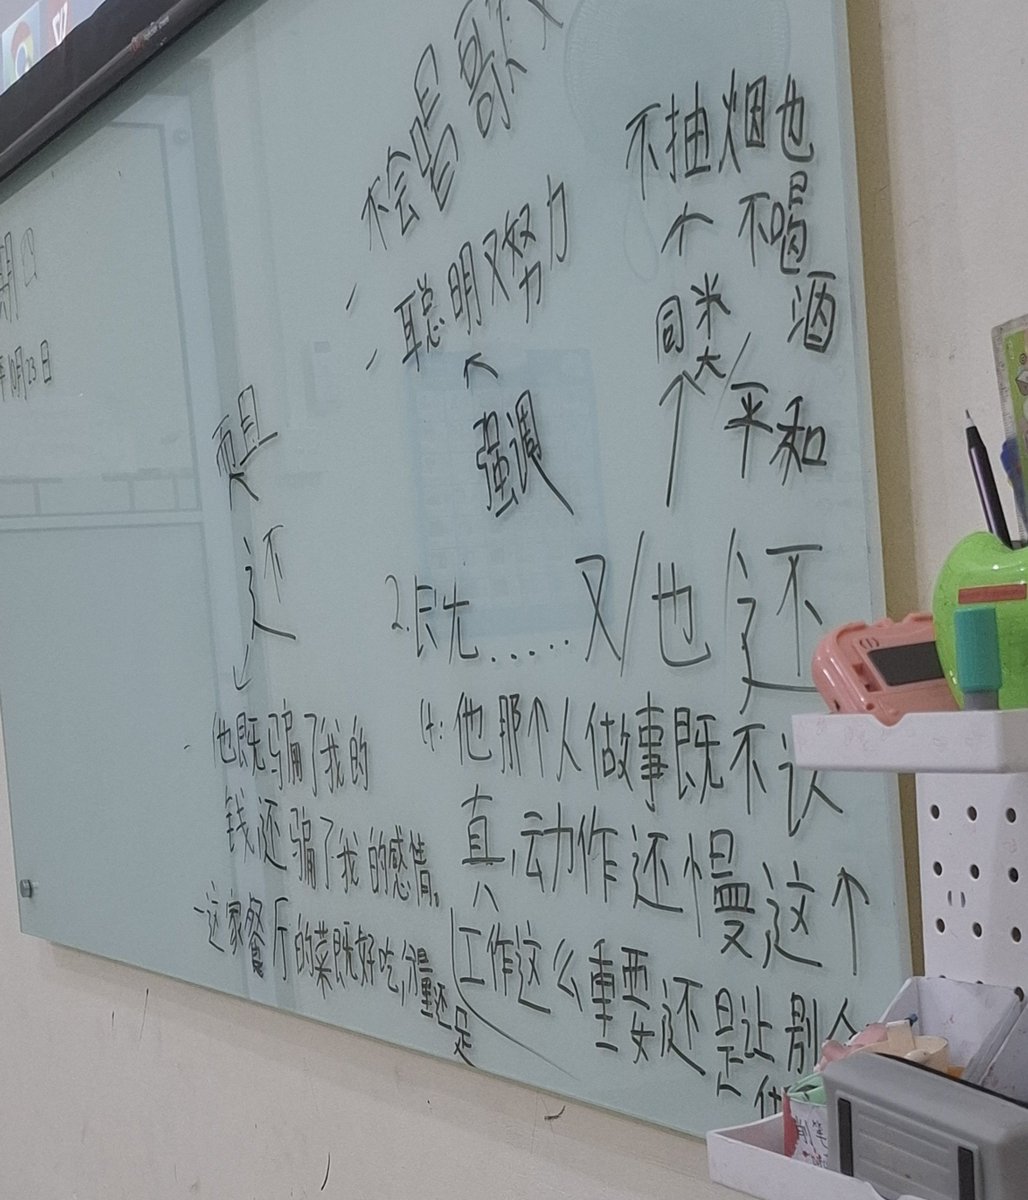 不会唱歌
聪明又努力
强调
不抽烟也
不喝
酒
同类
平和
期
10月23日
而且
还
2.既……又/也/还
他既骗了我的
钱还骗了我的感情。
这家餐厅的菜既好吃,分量还
足
4:他那个人做事既不认
真,动作还慢这个
工作这么重要还是让别